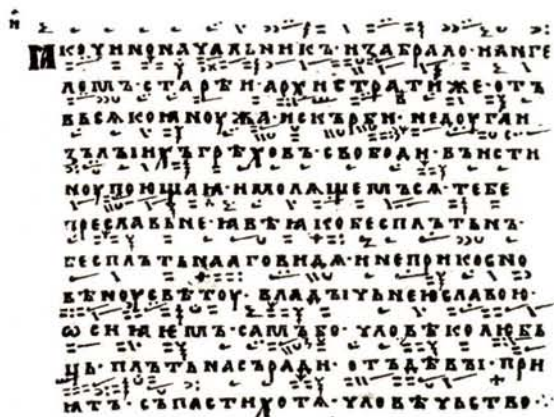 Н
ꙖКОЧИНОНАЧАЛЬНИКЪ·ИЗАБРАЛО·ИАНГЕ
ЛОМЪ·СТАРѢИ·АРХИСТРАТИЖЕ·ОТЪ
ВЬСѦКОꙖНОУЖА·ИСКЪРБИ·НЕДОУГАИ
ЗЪЛЪІИХЪГРѢХОВЪ·СВОБОДИ·ВЪИСТИ
НОУПОЮЩАꙖ·ИМОЛѦЩЕМЪСѦ·ТЕБЕ
ПРЕСЛАВЬНЕ·ꙖВѢꙖКОБЕСПЛЪТЬНЪ·
БЕСПЛЪТЬНААГОВИДѦ·ИНЕПРИКОСНО
ВѢНОУСВѢТОУ·ВЛАДЪІЧЬНЕЮСЛАВОЮ·
ѠСИꙖЕМЪ·САМЪБО·ЧЛОВѢКОЛЮБЬ
ЦЬ·ПЛЪТЬНАСЪРАДИ·ОТЪДѢВЪІ·ПРИ
ꙖТЪ·СЪПАСТИХОТѦ·ЧЛОВѢЧЬСТВО·:·